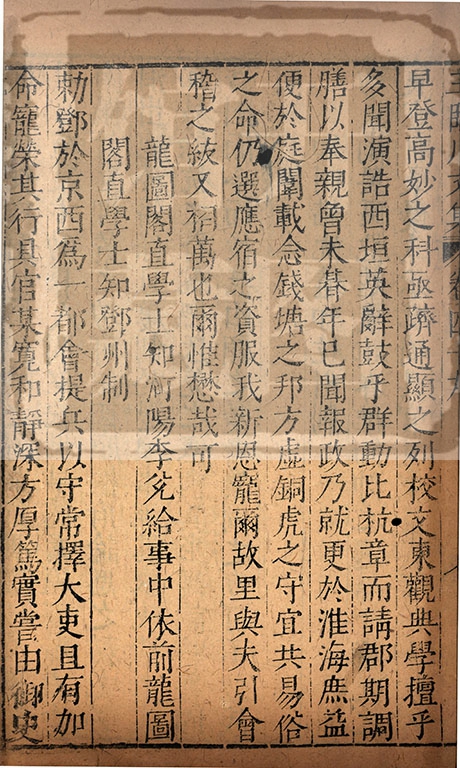 早登高妙之科亟躋通顯之列校文東觀典學擅乎
多聞演誥西垣英辭鼓乎群動比杭章而請郡期調
膳以奉親曾未朞年已聞報政乃就更於淮海庶益
便於庭闈載念錢塘之邦方虛銅虎之守宜共易俗
之命仍選應宿之資服我新恩寵爾故里與夫引會
稽之紱又相萬也爾惟懋哉可
龍圖閣直學士知河陽李兊給事中依前龍圖
閣直學士知鄧州制
勅鄧於京西爲一都會提兵以守常擇大吏且有加
命寵榮其行具官某寬和靜深方厚篤實嘗由御史